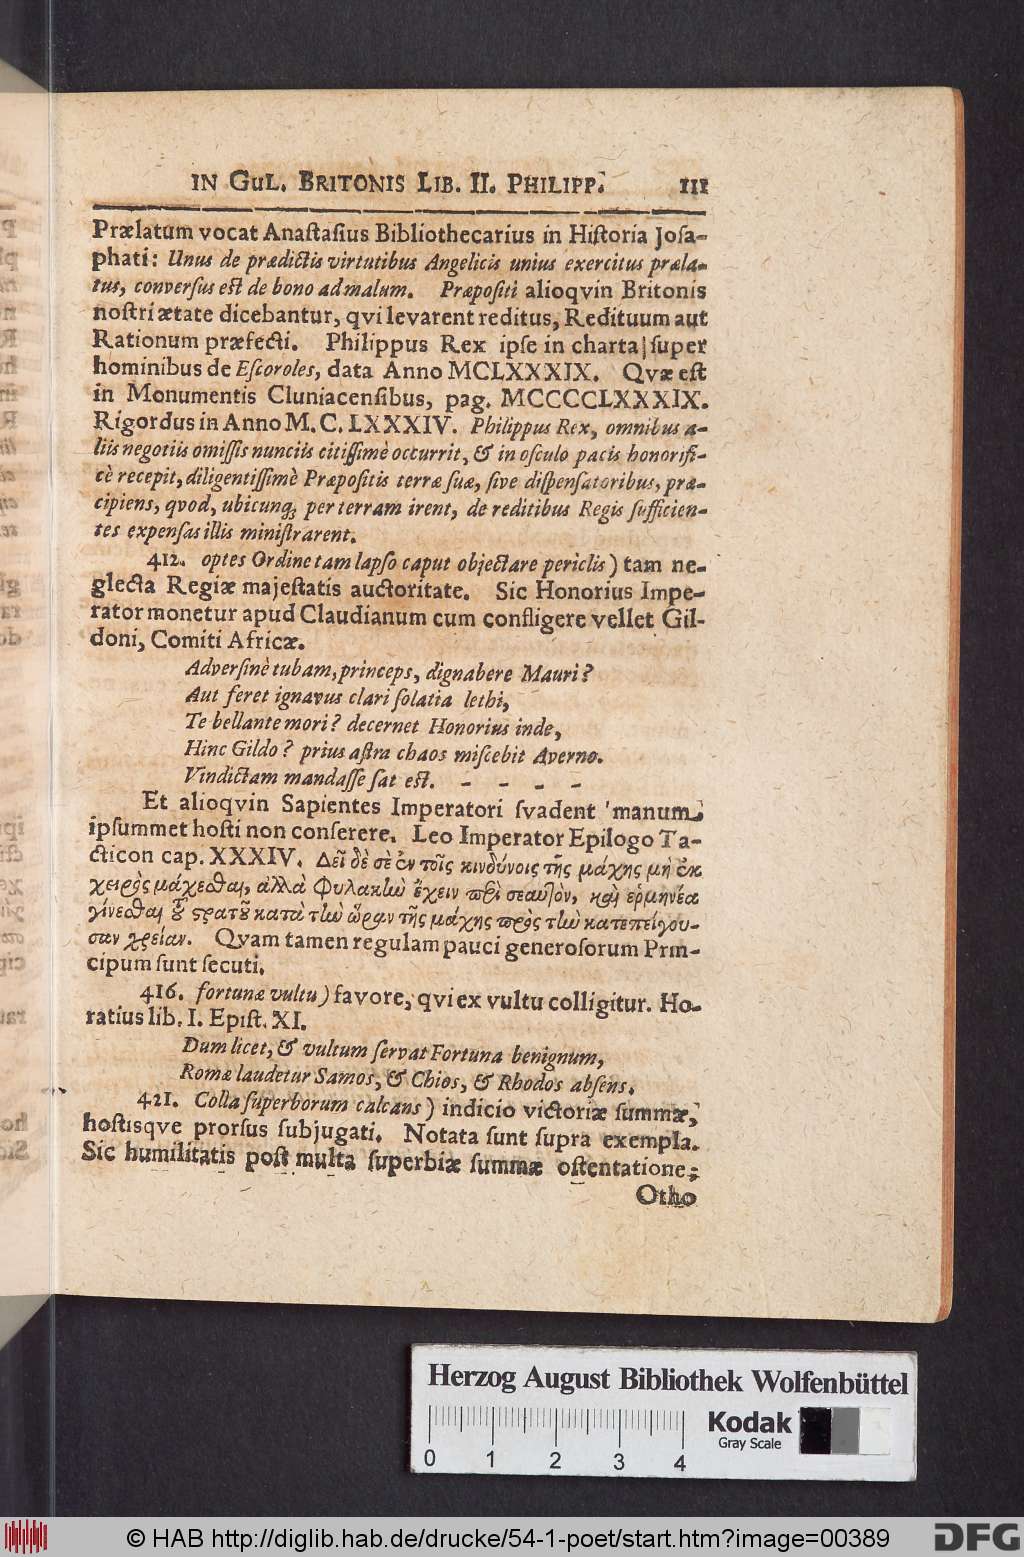 IN GuL. BRITONIS LIB. II. PHILIPP. 111
Prælatum vocat Anaſtaſius Bibliothecarius in Hiſtoria Joſa-
phati: Unus de prædictis virtutibus Angelicis unius exercitus præla-
tus, converſus eſt de bono ad malum. Præpoſiti alioqvin Britonis
noſtri ætate dicebantur, qvi levarent reditus, Redituum aut
Rationum præfecti. Philippus Rex ipſe in charta ſuper
hominibus de Eſcoroles, data Anno MCLXXXIX. Qvæ eſt
in Monumentis Cluniacenſibus, pag. MCCCCLXXXIX.
Rigordus in Anno M. C. LXXXIV. Philippus Rex, omnibus a-
liis negotiis omiſſis nunciis citiſſimè occurrit, & in oſculo pacis honorifi-
cè recepit, diligentiſſimè Præpoſitis terræ ſuæ, ſive diſpenſatoribus, præ-
cipiens, qvod, ubicunq; per terram irent, de reditibus Regis ſufficien-
tes expenſas illis miniſtrarent.
412. optes Ordine tam lapſo caput objectare periclis) tam ne-
glecta Regiæ majeſtatis auctoritate. Sic Honorius Impe-
rator monetur apud Claudianum cum confligere vellet Gil-
doni, Comiti Africæ.
Adverſinè tubam, princeps, dignabere Mauri?
Aut feret ignavus clari ſolatia lethi,
Te bellante mori? decernet Honorius inde,
Hinc Gildo? prius aſtra chaos miſcebit Averno.
Vindictam mandaſſe ſat eſt. - - - -
Et alioqvin Sapientes Imperatori ſvadent manum
ipſummet hoſti non conſerere. Leo Imperator Epilogo Ta-
cticon cap. XXXIV. Δεῖ δὲ σὲ ἐν τοῖς κινδύνοις τῆς μάχης μὴ ἐκ
χειρὸς μάχεσθαι, ἀλλὰ φυλακὴν ἔχειν περὶ σεαυτὸν, καὶ ἑρμηνέα
γίνεσθαι τοῦ στρατοῦ κατὰ τὴν ὥραν τῆς μάχης πρὸς τὴν κατεπείγου-
σαν χρείαν. Qvam tamen regulam pauci generoſorum Prin-
cipum ſunt ſecuti.
416. fortunæ vultu) favore, qvi ex vultu colligitur. Ho-
ratius lib. I. Epiſt. XI.
Dum licet, & vultum ſervat Fortuna benignum,
Romæ laudetur Samos, & Chios, & Rhodos abſens.
421. Colla ſuperborum calcans) indicio victoriæ ſummæ,
hoſtisqve prorſus ſubjugati. Notata ſunt ſupra exempla.
Sic humilitatis poſt multa ſuperbiæ ſummæ oſtentatione;
Otho
Herzog August Bibliothek Wolfenbüttel
Kodak
Gray Scale
0 1 2 3 4
© HAB http://diglib.hab.de/drucke/54-1-poet/start.htm?image=00389
DFG